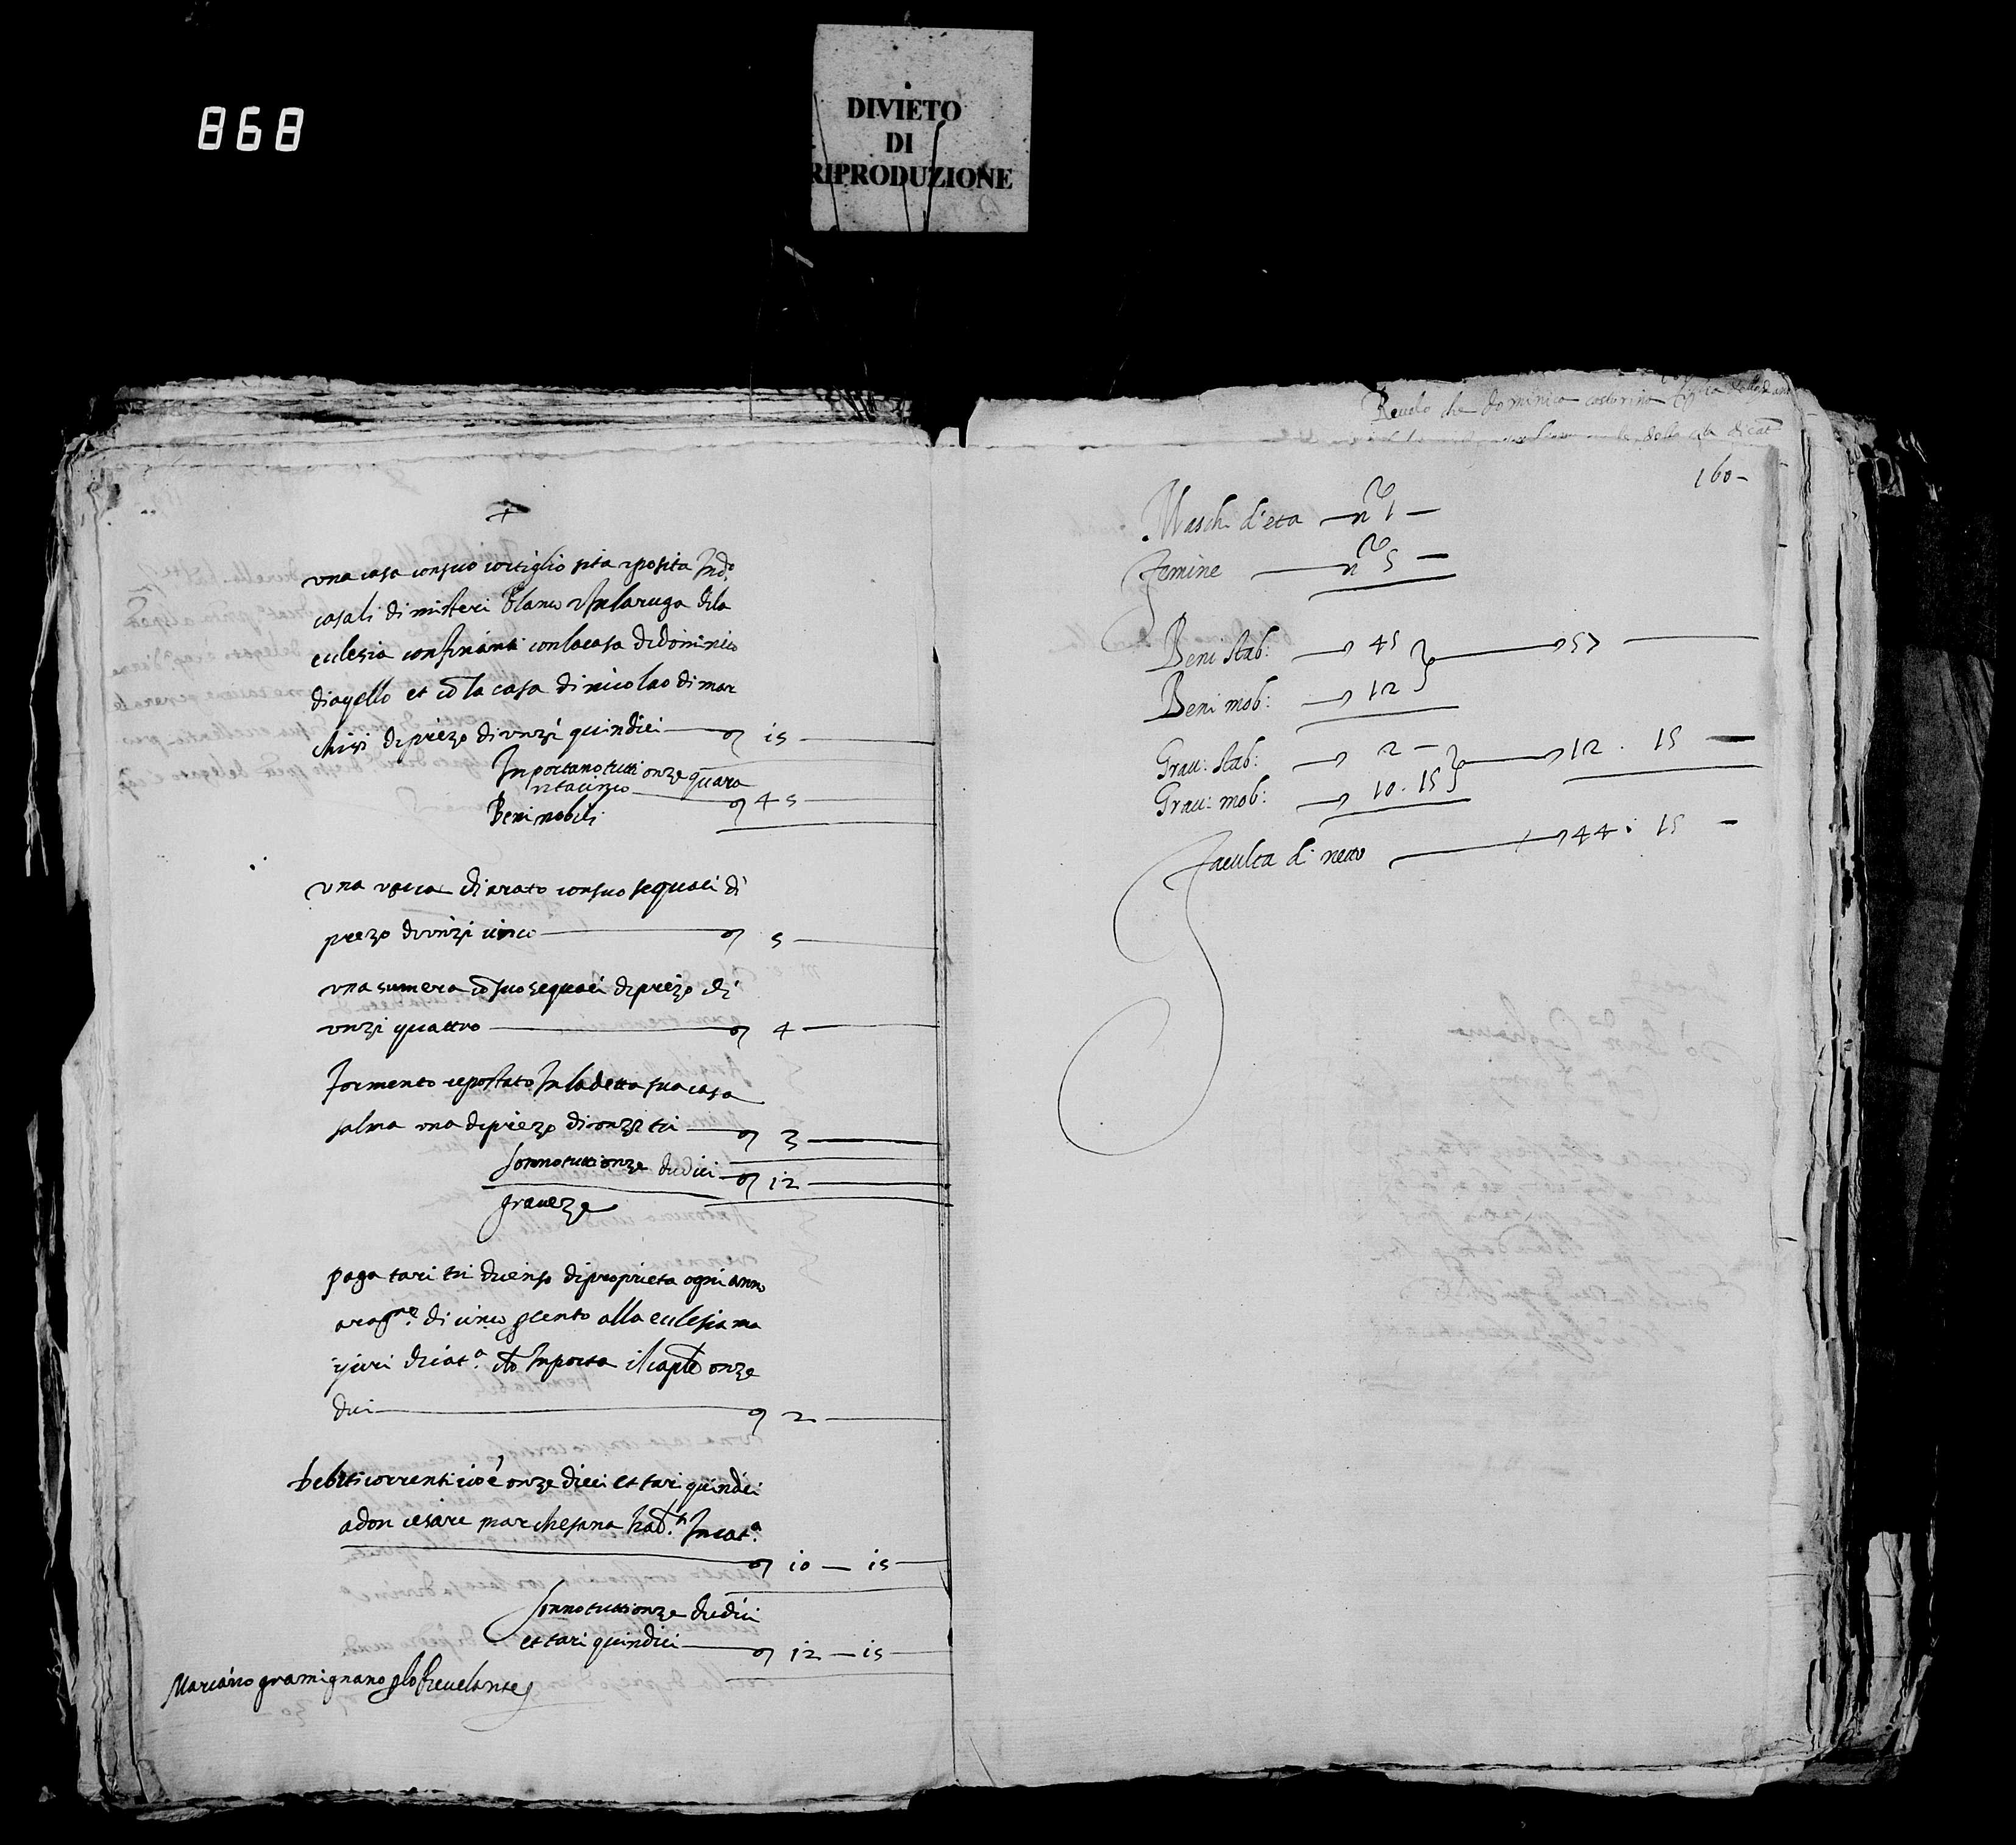 868
DIVIETO
DI
RIPRODUZIONE
+
una casa con suo cortiglio sita e posita In d.º
casali di misteri blanco In la ruga dila
eclesia confinanti con la casa di dominico
di ayello et cō la casa di nicolao di mar
chisi di prezo di unzi quindici — 15 —
Inportano tutti onze quara
ntacinco — 45 —
Beni mobili
una vacca di arato con suo sequaci di
prezo di unzi cinco — 5 —
una sumera cō suo sequaci di prezo di
unzi quattro — 4 —
formento repostato In la detta sua casa
salma una di prezo di onzi tri — 3 —
sonno tutti onze dudici — 12 —
graveze
paga tari tri di censo di proprieta ogni anno
a rag.ne di cinco per cento alla eclesia ma
di cat.a Inporta il cap.le onze
dui — 2 —
debiti correnti cioè onze dieci et tari quindici
a don cesare marchesana hab. In cat.a
10 — 15 —
sonno tutti onze dudici
et tari quindici — 12 — 15 —
Mariano gramignano p lo Revelante
Revelo che dominico
160 —
Maschi d'eta — n.º 1 —
Femine — n.º 5 —
Beni stab: — 45 — 57 —
Beni mob: — 12
Grav: stab: — 2 — 12 . 15 —
Grav: mob: — 10 . 15
Faculta di netto — 44 . 15 —